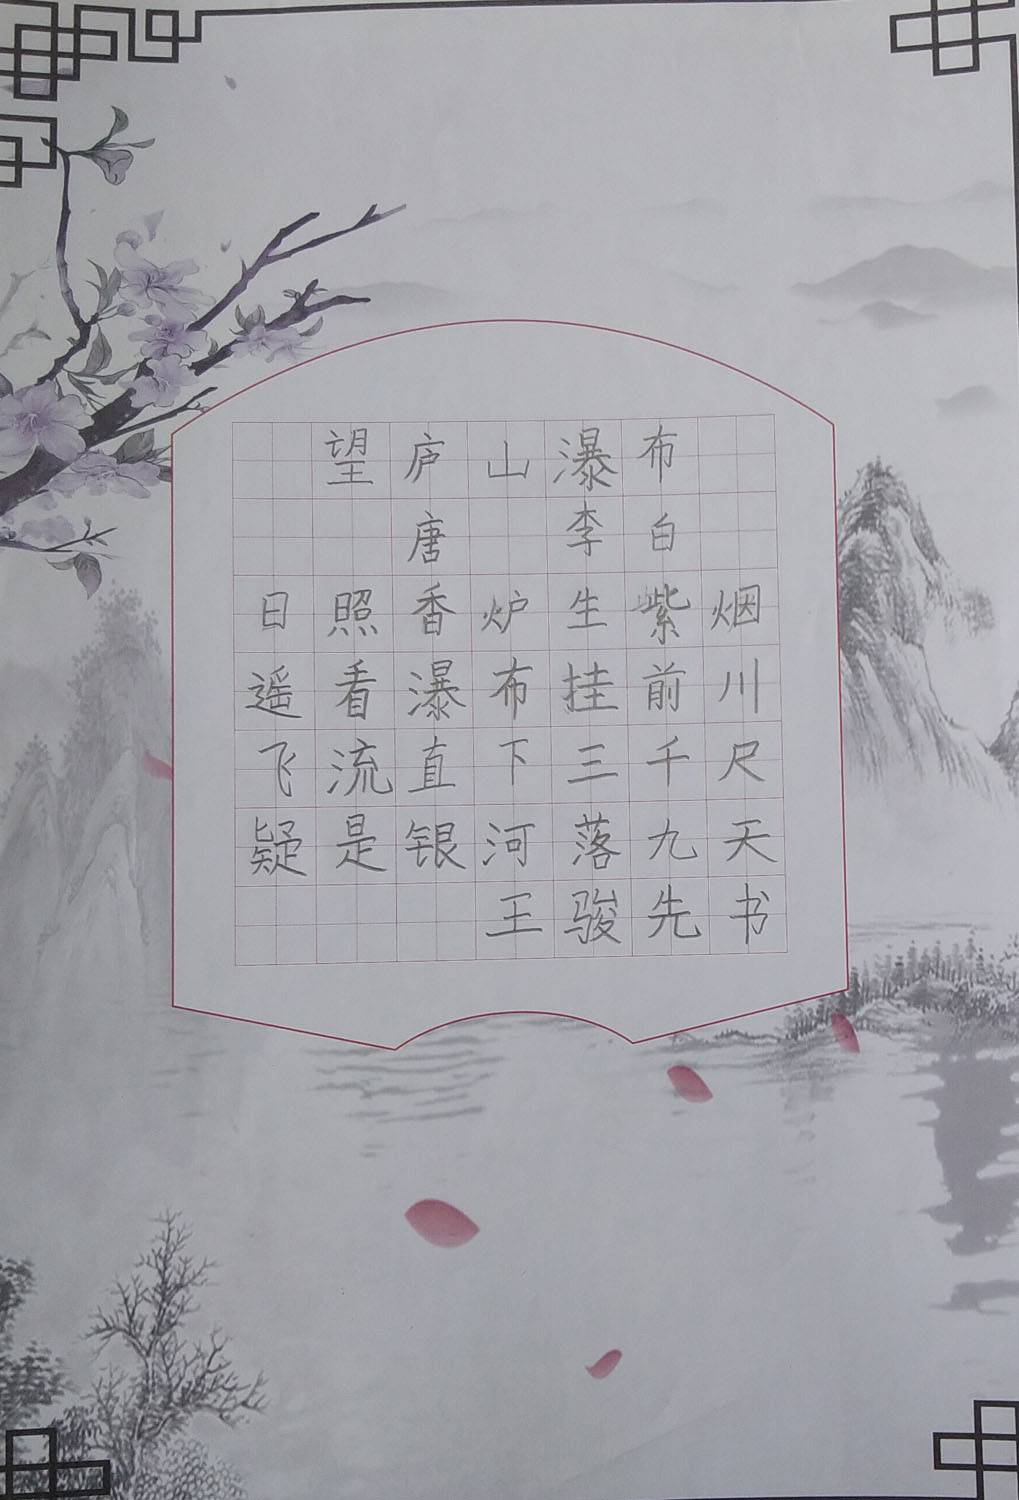 望庐山瀑布
唐 李白
日照香炉生紫烟
遥看瀑布挂前川
飞流直下三千尺
疑是银河落九天
王骏先书